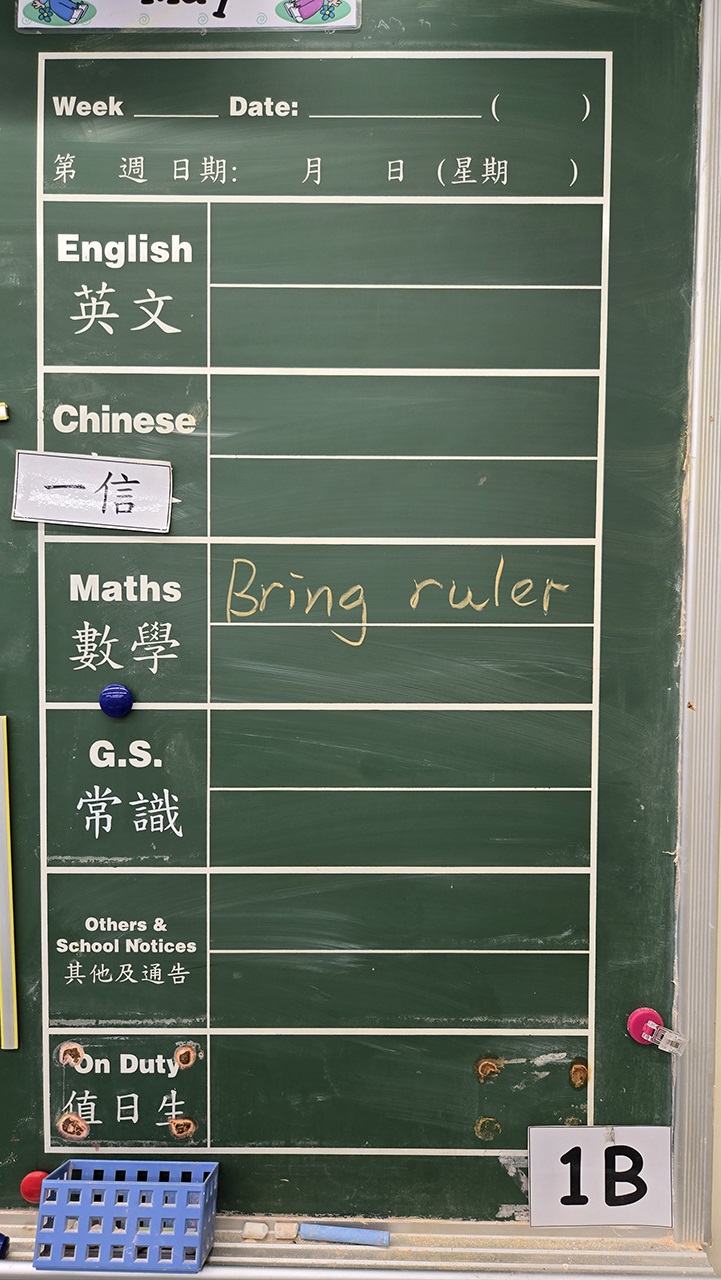 May
Week ______ Date: ____________ (      )
第 週 日期: 月 日 (星期 )
English
英文
Chinese
一信
Maths
Bring ruler
數學
G.S.
常識
Others &
School Notices
其他及通告
On Duty
值日生
1B